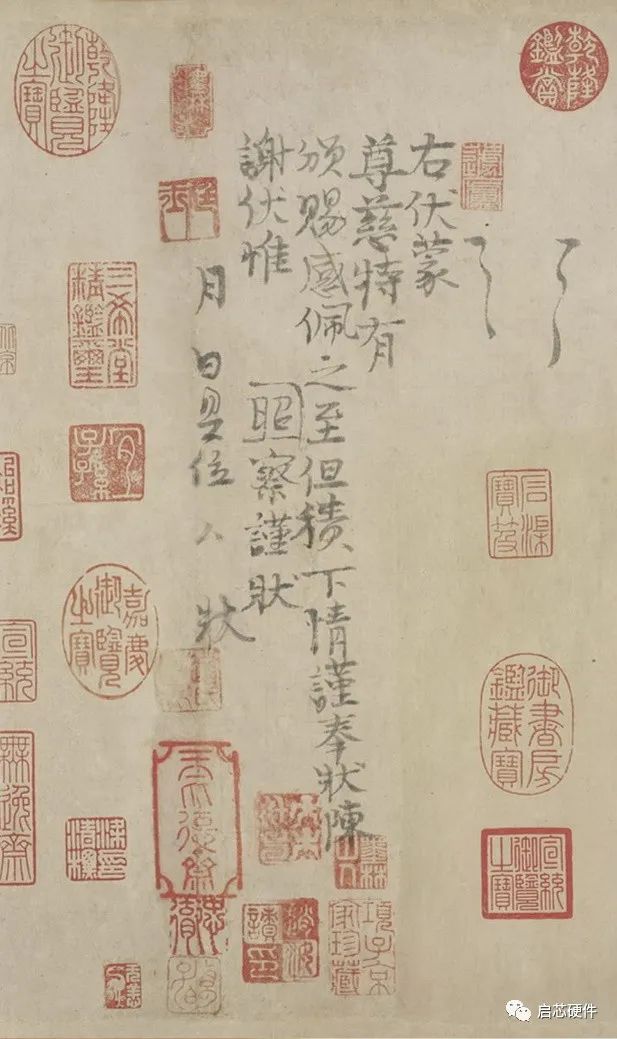 乾隆鑑賞
石渠寶笈
御書房鑑藏寶
宣統御覽之寶
右伏蒙
尊慈特有
頒賜感佩之至但積下情謹奉狀陳
謝伏惟
照察謹狀
月 日具位 人 狀
項子京家珍藏
乾隆御覽之寶
三希堂精鑑璽
宜子孫
嘉慶御覽之寶
宣統
無逸齋
启芯硬件